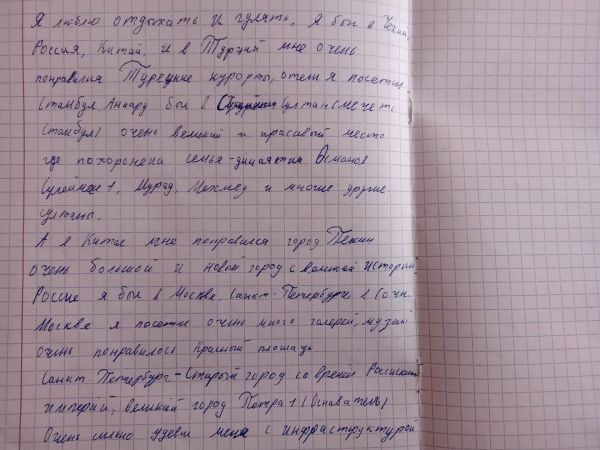 Я люблю отдыхать и гулять. Я был в Чехий,
Россия, Китай, и в Турций мне очень
понравился Турецкие курорты, отели я посетил
Стамбул Анкару был в Султан мечеть
Стамбул очень великий и красивый место
где похоронена семья-династия Османов
Сулейман 1, Мурад, Мехмед и многие другие
султаны.
А в Китае мне понравился город Пекин
очень большой и новый город с великой историй
Россие я был в Москве, Санкт-Петербурге в Сочи.
Москве я посетил очень много галерей, музей
очень понравилось Красный площадь
Санкт Петербург-Старый город со времён Расиской
империй, великий город Петра 1 (Основатель)
Очень сильно удевил меня с инфраструктурой